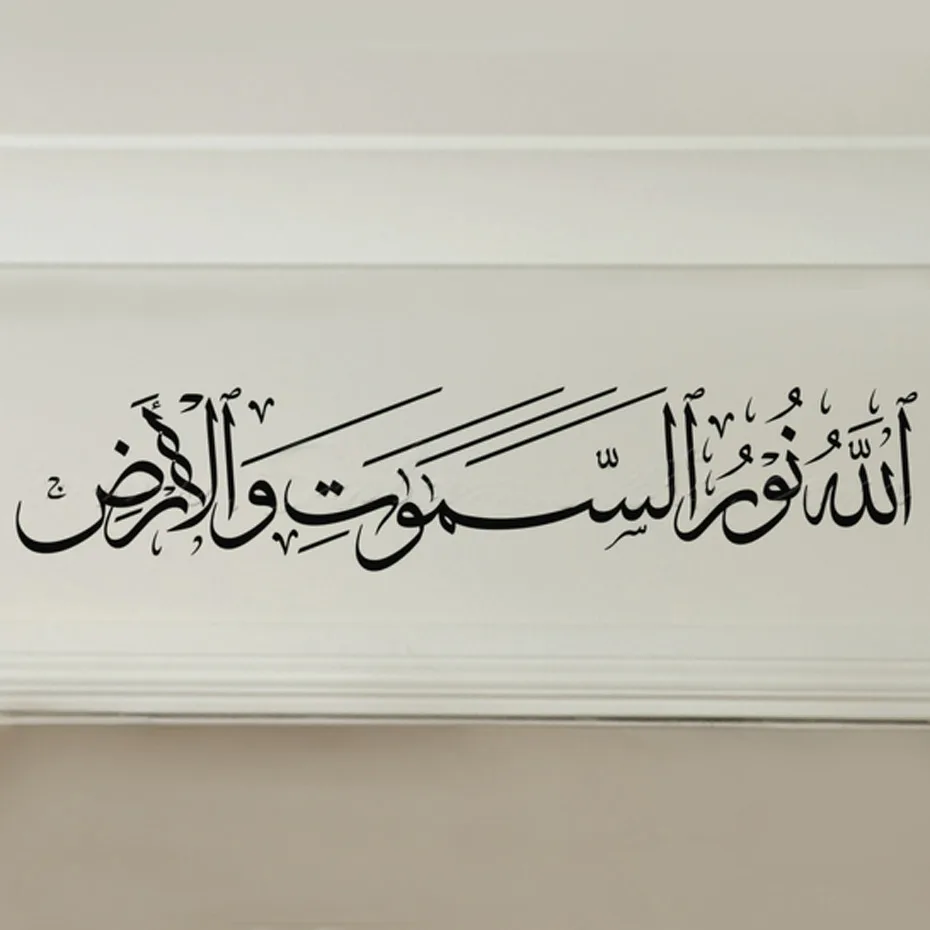 ٱللَّهُ نُورُ ٱلسَّمَٰوَٰتِ وَٱلْأَرْضِ ۚ